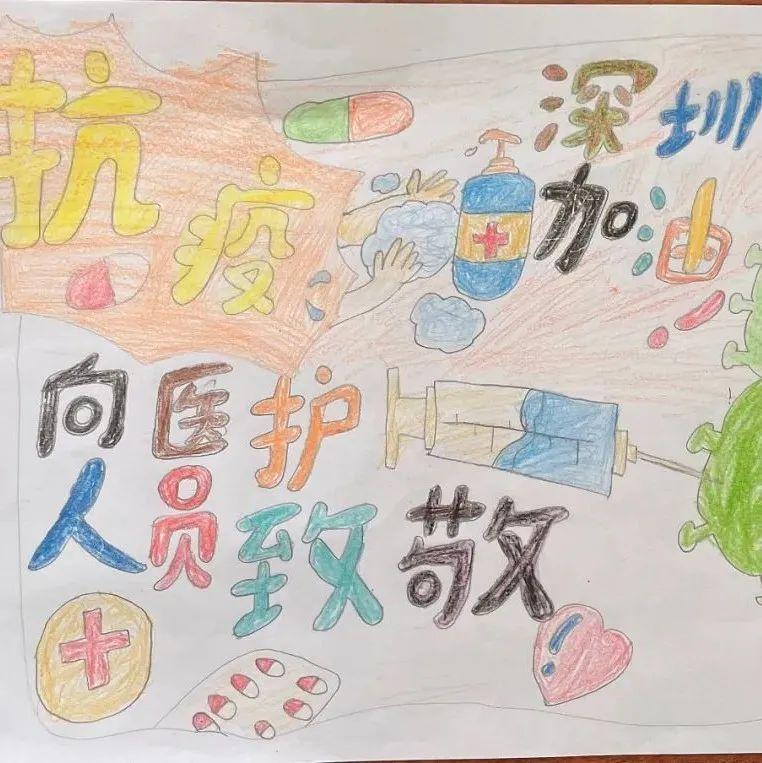 抗疫
深圳
加油
向医护
人员致敬